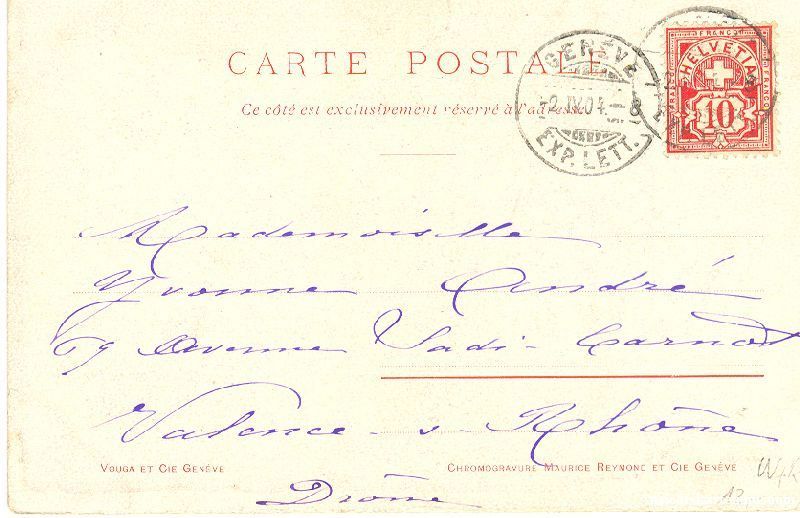 CARTE POSTALE
Ce côté est exclusivement réservé à l'adresse.
GENÈVE
2.IV.04. 8
EXP. LETT.
FRANCO
HELVETIA
10
FRANCO
Mademoiselle
Yvonne André
69 Avenue Sadi-Carnot
Valence s Rhône
VOUGA ET CIE GENÈVE
CHROMOGRAVURE MAURICE REYMOND ET CIE GENÈVE
Drôme
12